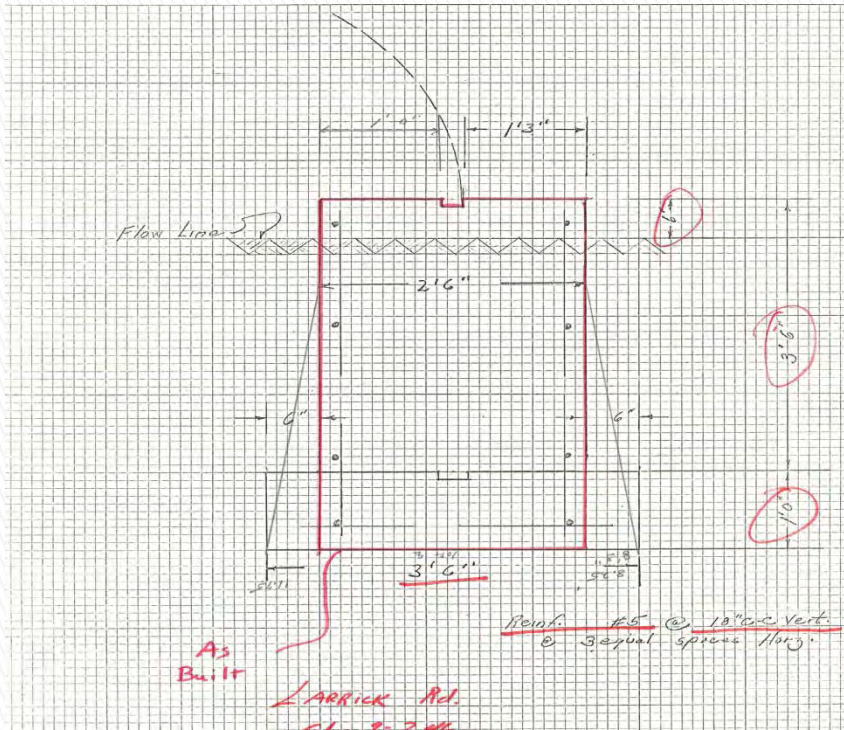 1'3"
Flow Line
6"
2'6"
3'6"
6"
6"
1'0"
3'6"
Reinf. #5 @ 18"C-C Vert.
@ 3 equal spaces Horiz.
As
Built
LARRICK Rd.